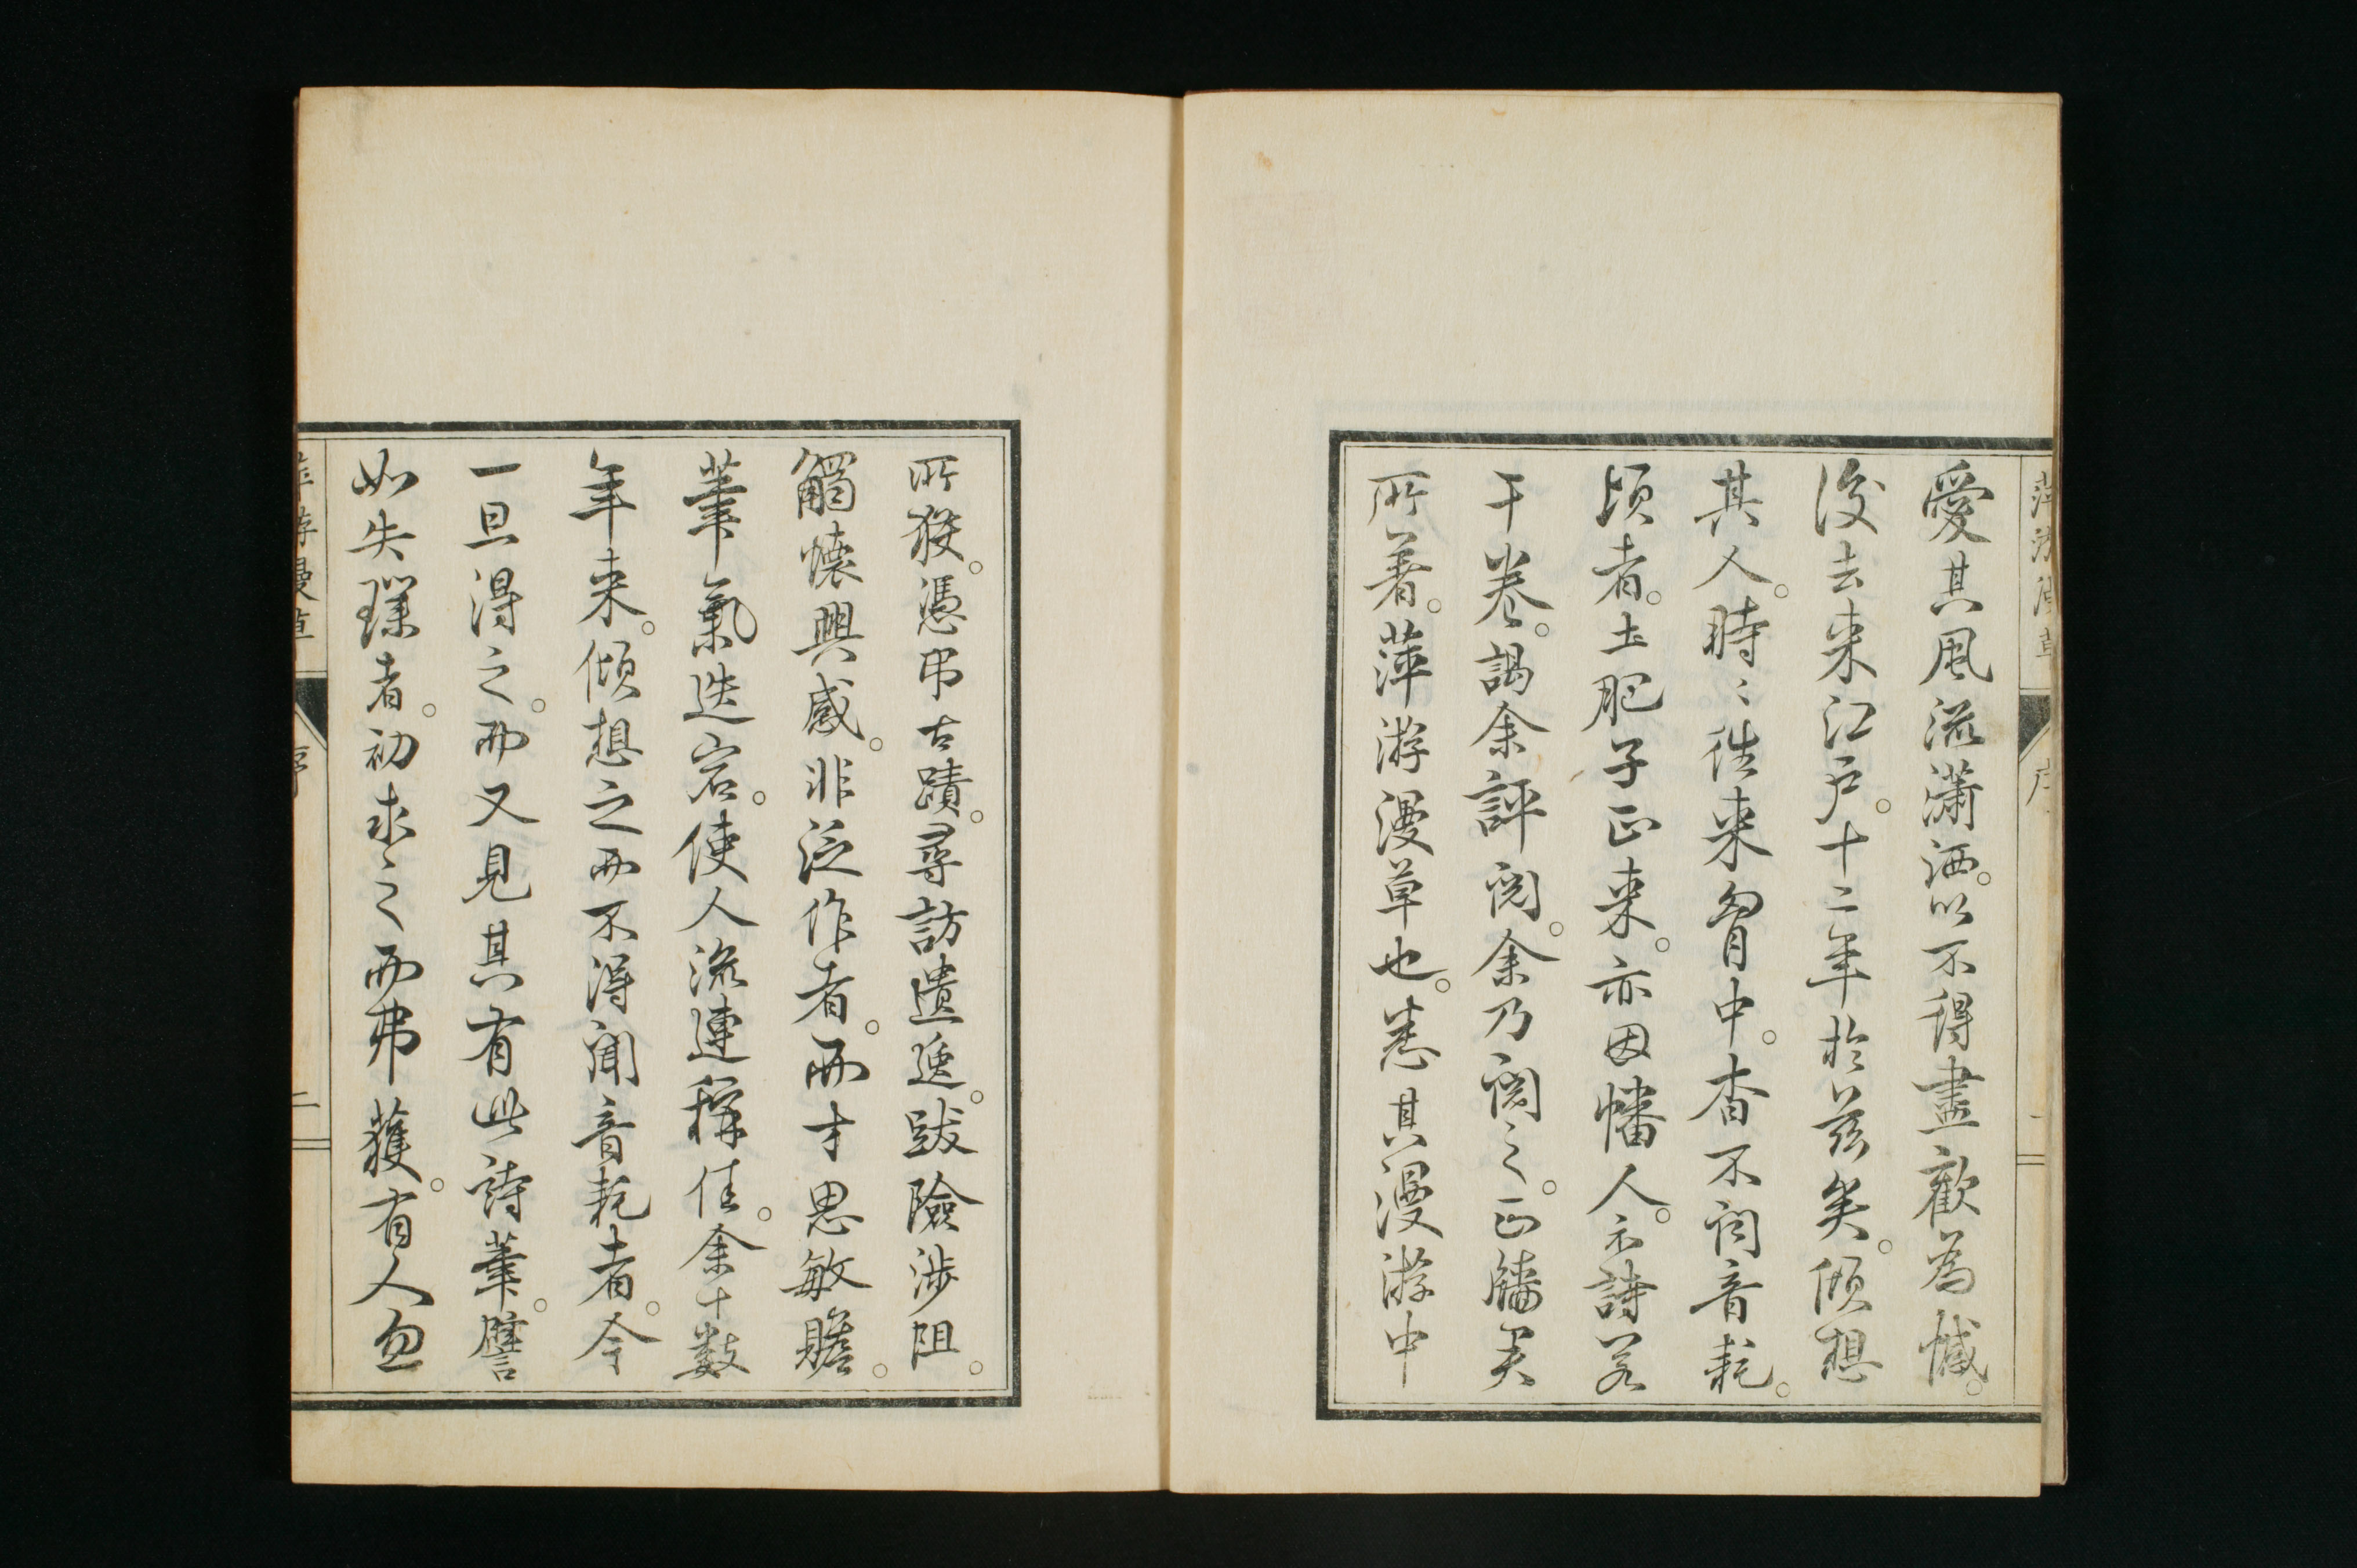 愛其風流瀟洒。以不得盡歡為憾。
後去来江戸。十二年於茲矣。傾想
其人。時〻往来胷中。杳不詞音耗。
頃者。土肥子正来。亦因幡人。示詩若
干卷。謁余評閲。余乃閲之。正幡美
所著。萍游漫草也。悉其漫游中
所發。憑弔古蹟。尋訪遺逸。跋險涉阻。
觸懷興感。非泛作者。而才思敏贍。
筆氣迭宕。使人流連稱佳。余十数
年来。傾想之而不得聞音耗者。今
一旦得之。而又見其有此詩筆。譬
如失璞者。初求之而弗獲。有人忽
萍游漫草
序
二